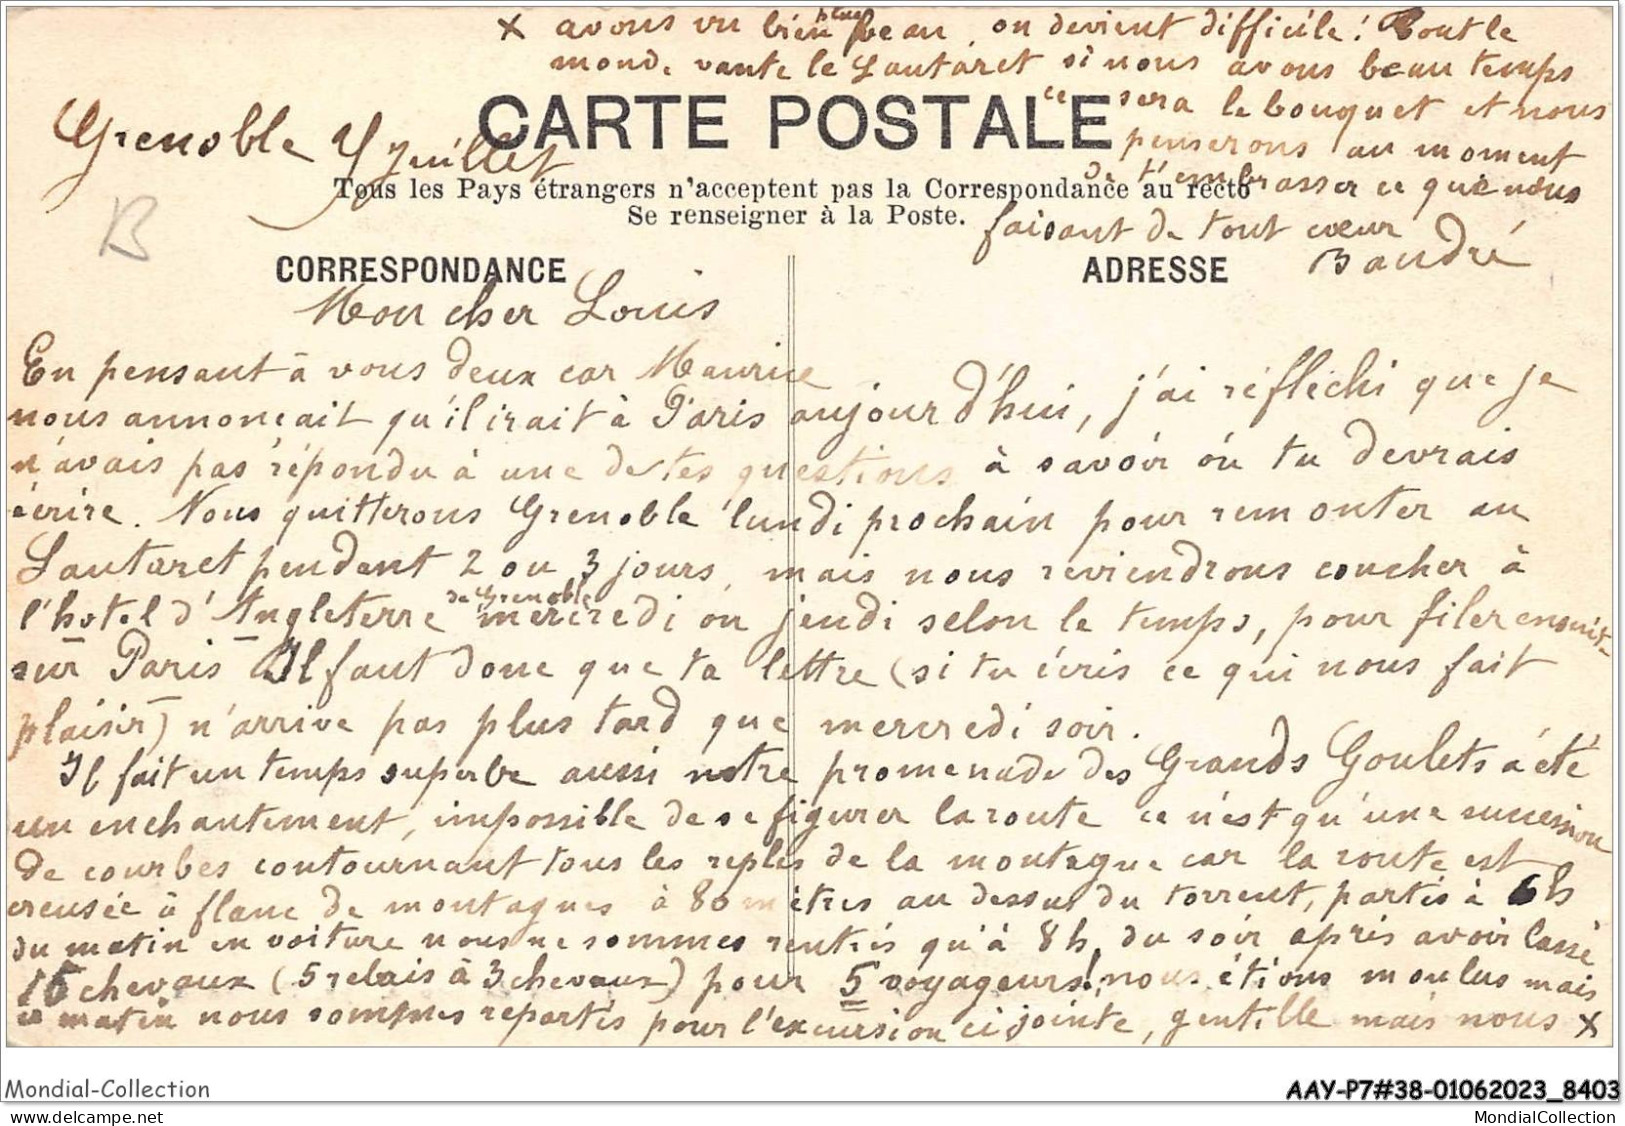 x avons vu bien plus beau, on devient difficile! Tout le
monde vante le Lautaret si nous avons beau temps
ce sera le bouquet et nous
penserons au moment
de t'embrasser ce que nous
faisant de tout cœur
Baudré
CARTE POSTALE
Grenoble 4 juillet
Tous les Pays étrangers n'acceptent pas la Correspondance au recto
Se renseigner à la Poste.
B
CORRESPONDANCE
ADRESSE
Mon cher Louis
En pensant à vous deux car Maurice
nous annonçait qu'il irait à Paris aujourd'hui, j'ai réfléchi que je
n'avais pas répondu à une de tes questions à savoir où tu devrais
écrire. Nous quitterons Grenoble lundi prochain pour remonter au
Lautaret pendant 2 ou 3 jours, mais nous reviendrons coucher à
l'hotel d'Angleterre de Grenoble mercredi ou jeudi selon le temps, pour filer ensuite
sur Paris Il faut donc que ta lettre (si tu écris ce qui nous fait
plaisir) n'arrive pas plus tard que mercredi soir.
Il fait un temps superbe aussi notre promenade des Grands Goulets a été
un enchantement, impossible de se figurer la route ce n'est qu'une succession
de courbes contournant tous les replis de la montagne car la route est
creusée à flanc de montagnes à 80 mètres au dessus du torrent, partis à 6h
du matin en voiture nous ne sommes rentrés qu'à 8h. du soir après avoir lassé
15 chevaux (5 relais à 3 chevaux) pour 5 voyageurs! nous étions moulus mais
ce matin nous sommes repartis pour l'excursion ci jointe, gentille mais nous x
Mondial-Collection
AAY-P7#38-01062023_8403
www.delcampe.net
MondialCollection